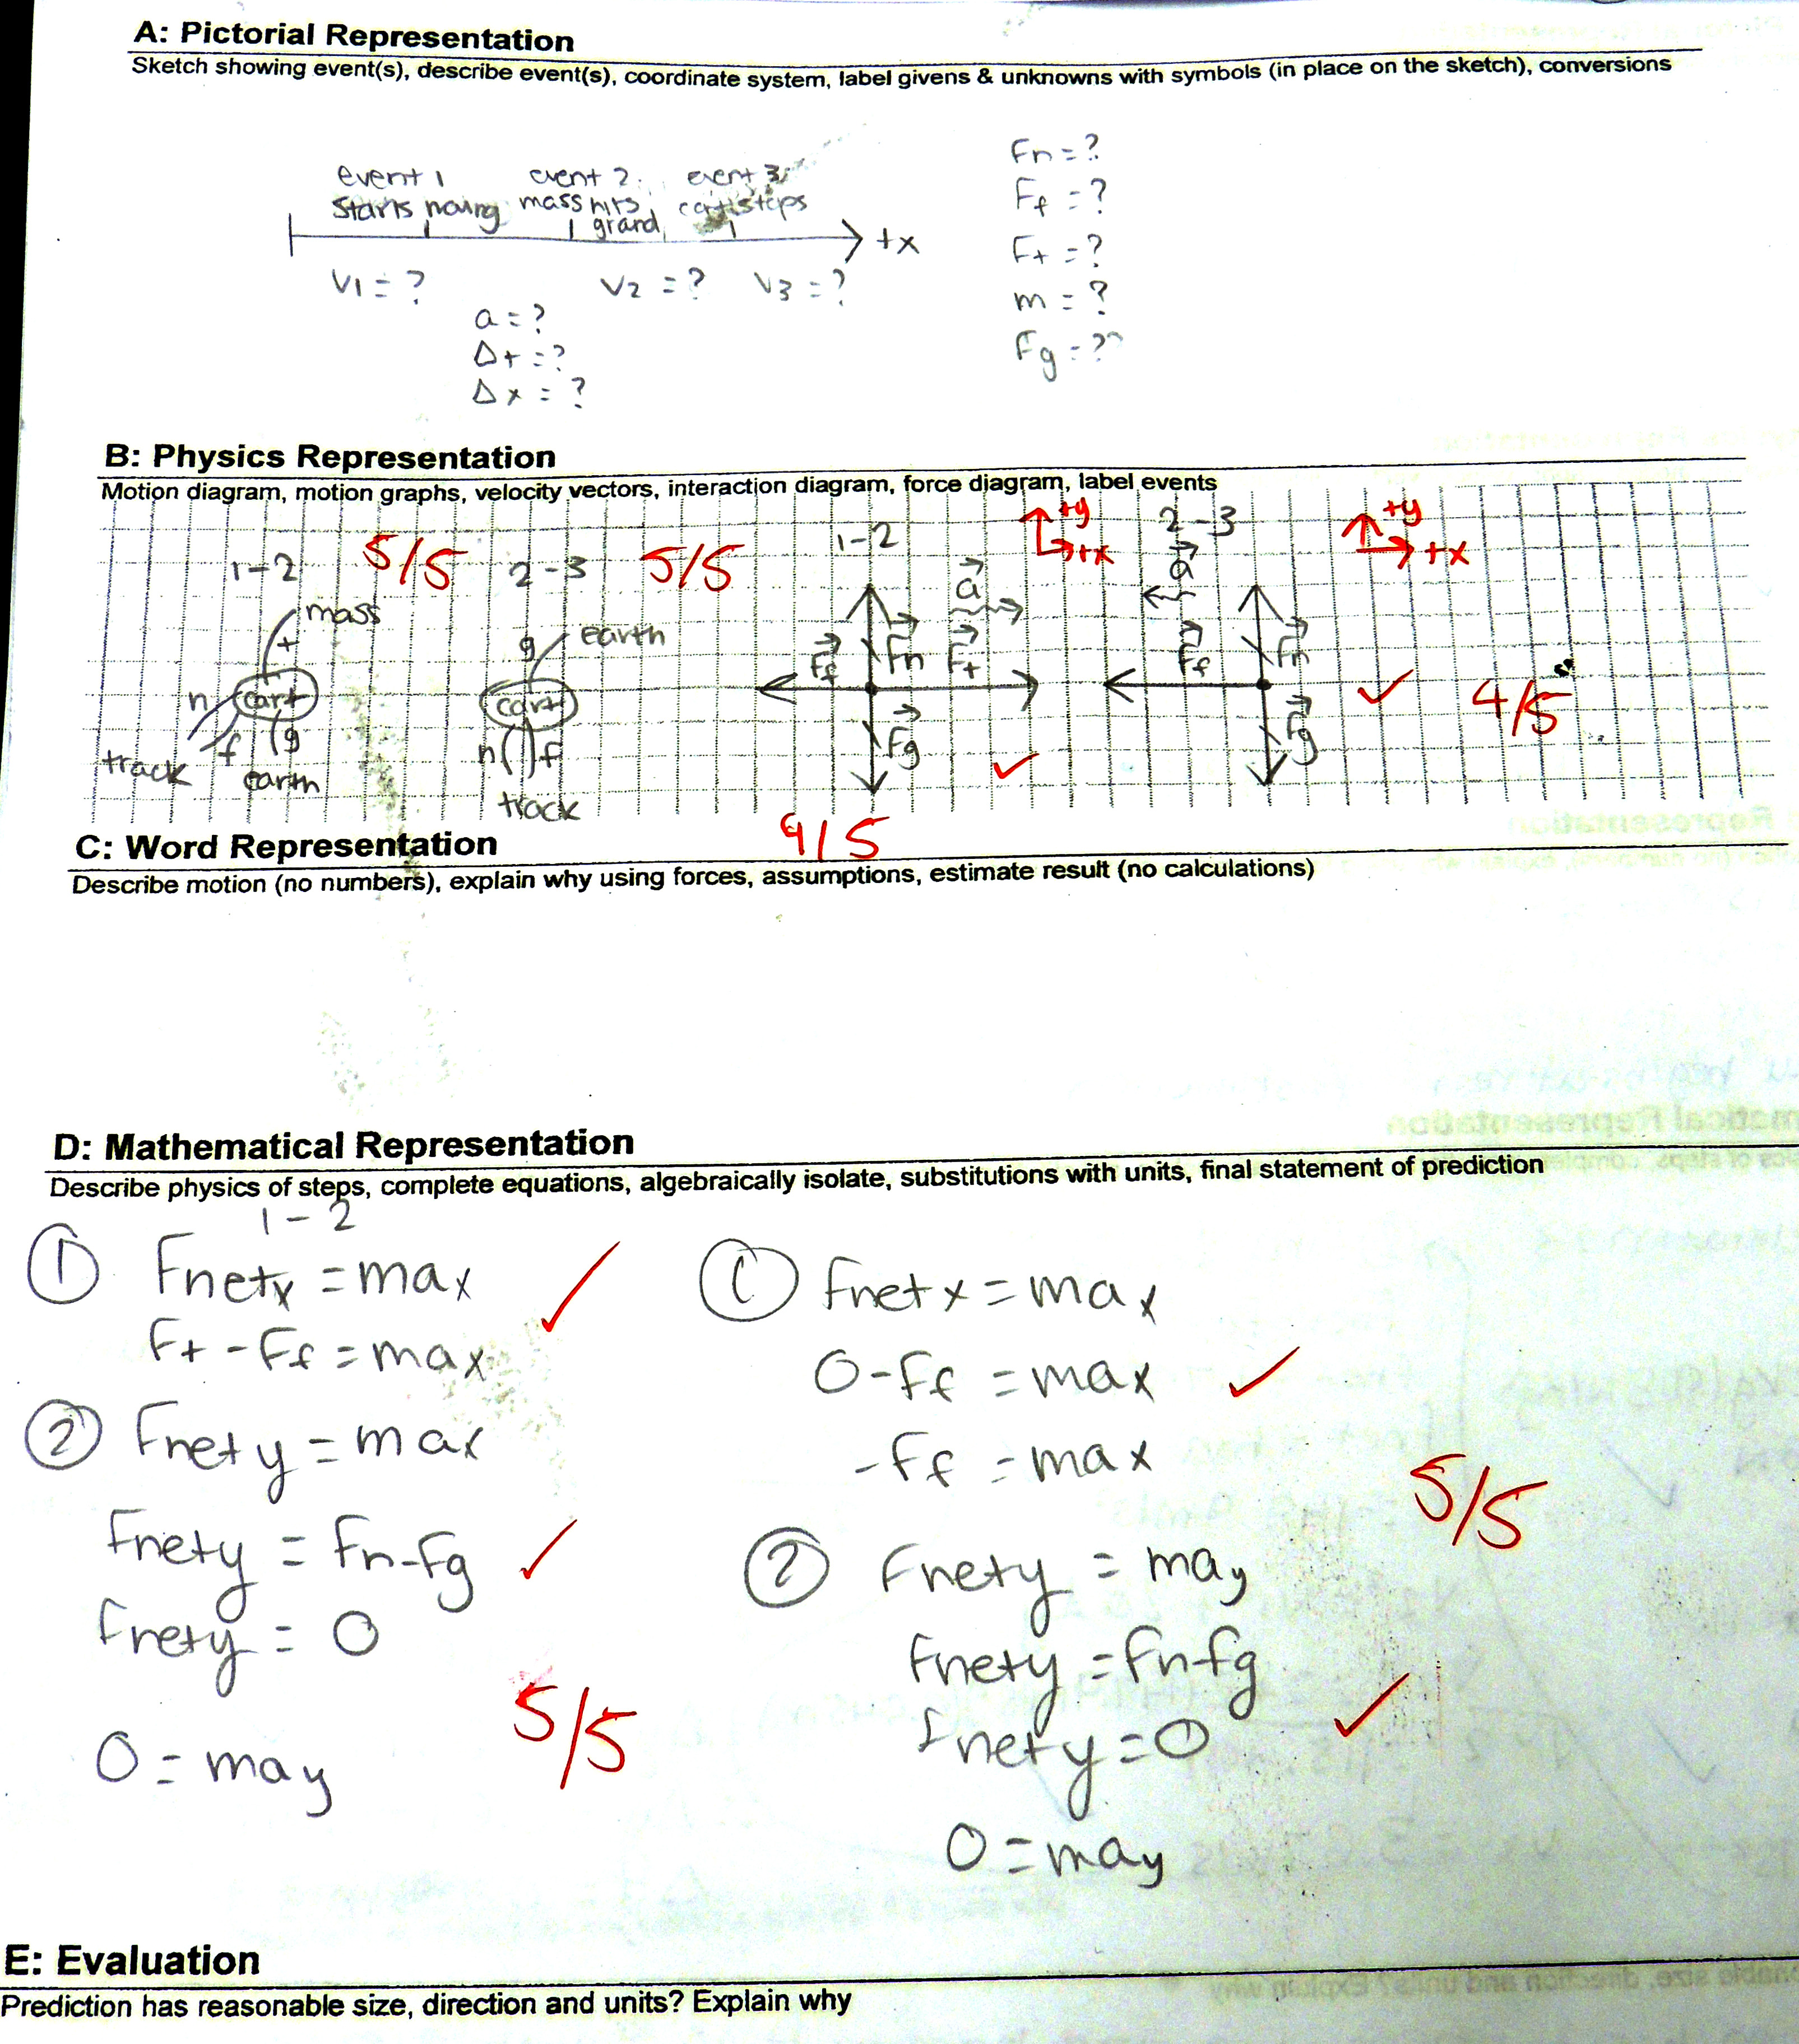 A: Pictorial Representation
Sketch showing event(s), describe event(s), coordinate system, label givens & unknowns with symbols (in place on the sketch), conversions
event 1 event 2 event 3
starts moving mass hits cart stops
grand
+x
V1 = ? V2 = ? V3 = ?
a = ?
Δt = ?
Δx = ?
Fn = ?
Ff = ?
Ft = ?
m = ?
Fg = ?
B: Physics Representation
Motion diagram, motion graphs, velocity vectors, interaction diagram, force diagram, label events
1-2 5/5 2-3 5/5 1-2 +y +x 2-3 +y +x
mass
t
n cart
f g
track earth
g earth
cart
n f
track
a
Ff Fn Ft
Fg
a
Ff Fn
Fg
4/5
9/5
C: Word Representation
Describe motion (no numbers), explain why using forces, assumptions, estimate result (no calculations)
D: Mathematical Representation
Describe physics of steps, complete equations, algebraically isolate, substitutions with units, final statement of prediction
1-2
① Fnetx = max
Ft - Ff = max
② Fnety = max
Fnety = Fn-Fg
Fnety = 0
0 = may
5/5
① Fnetx = max
0-Ff = max
-Ff = max
② Fnety = may
Fnety = Fn-Fg
Fnety = 0
0 = may
5/5
E: Evaluation
Prediction has reasonable size, direction and units? Explain why